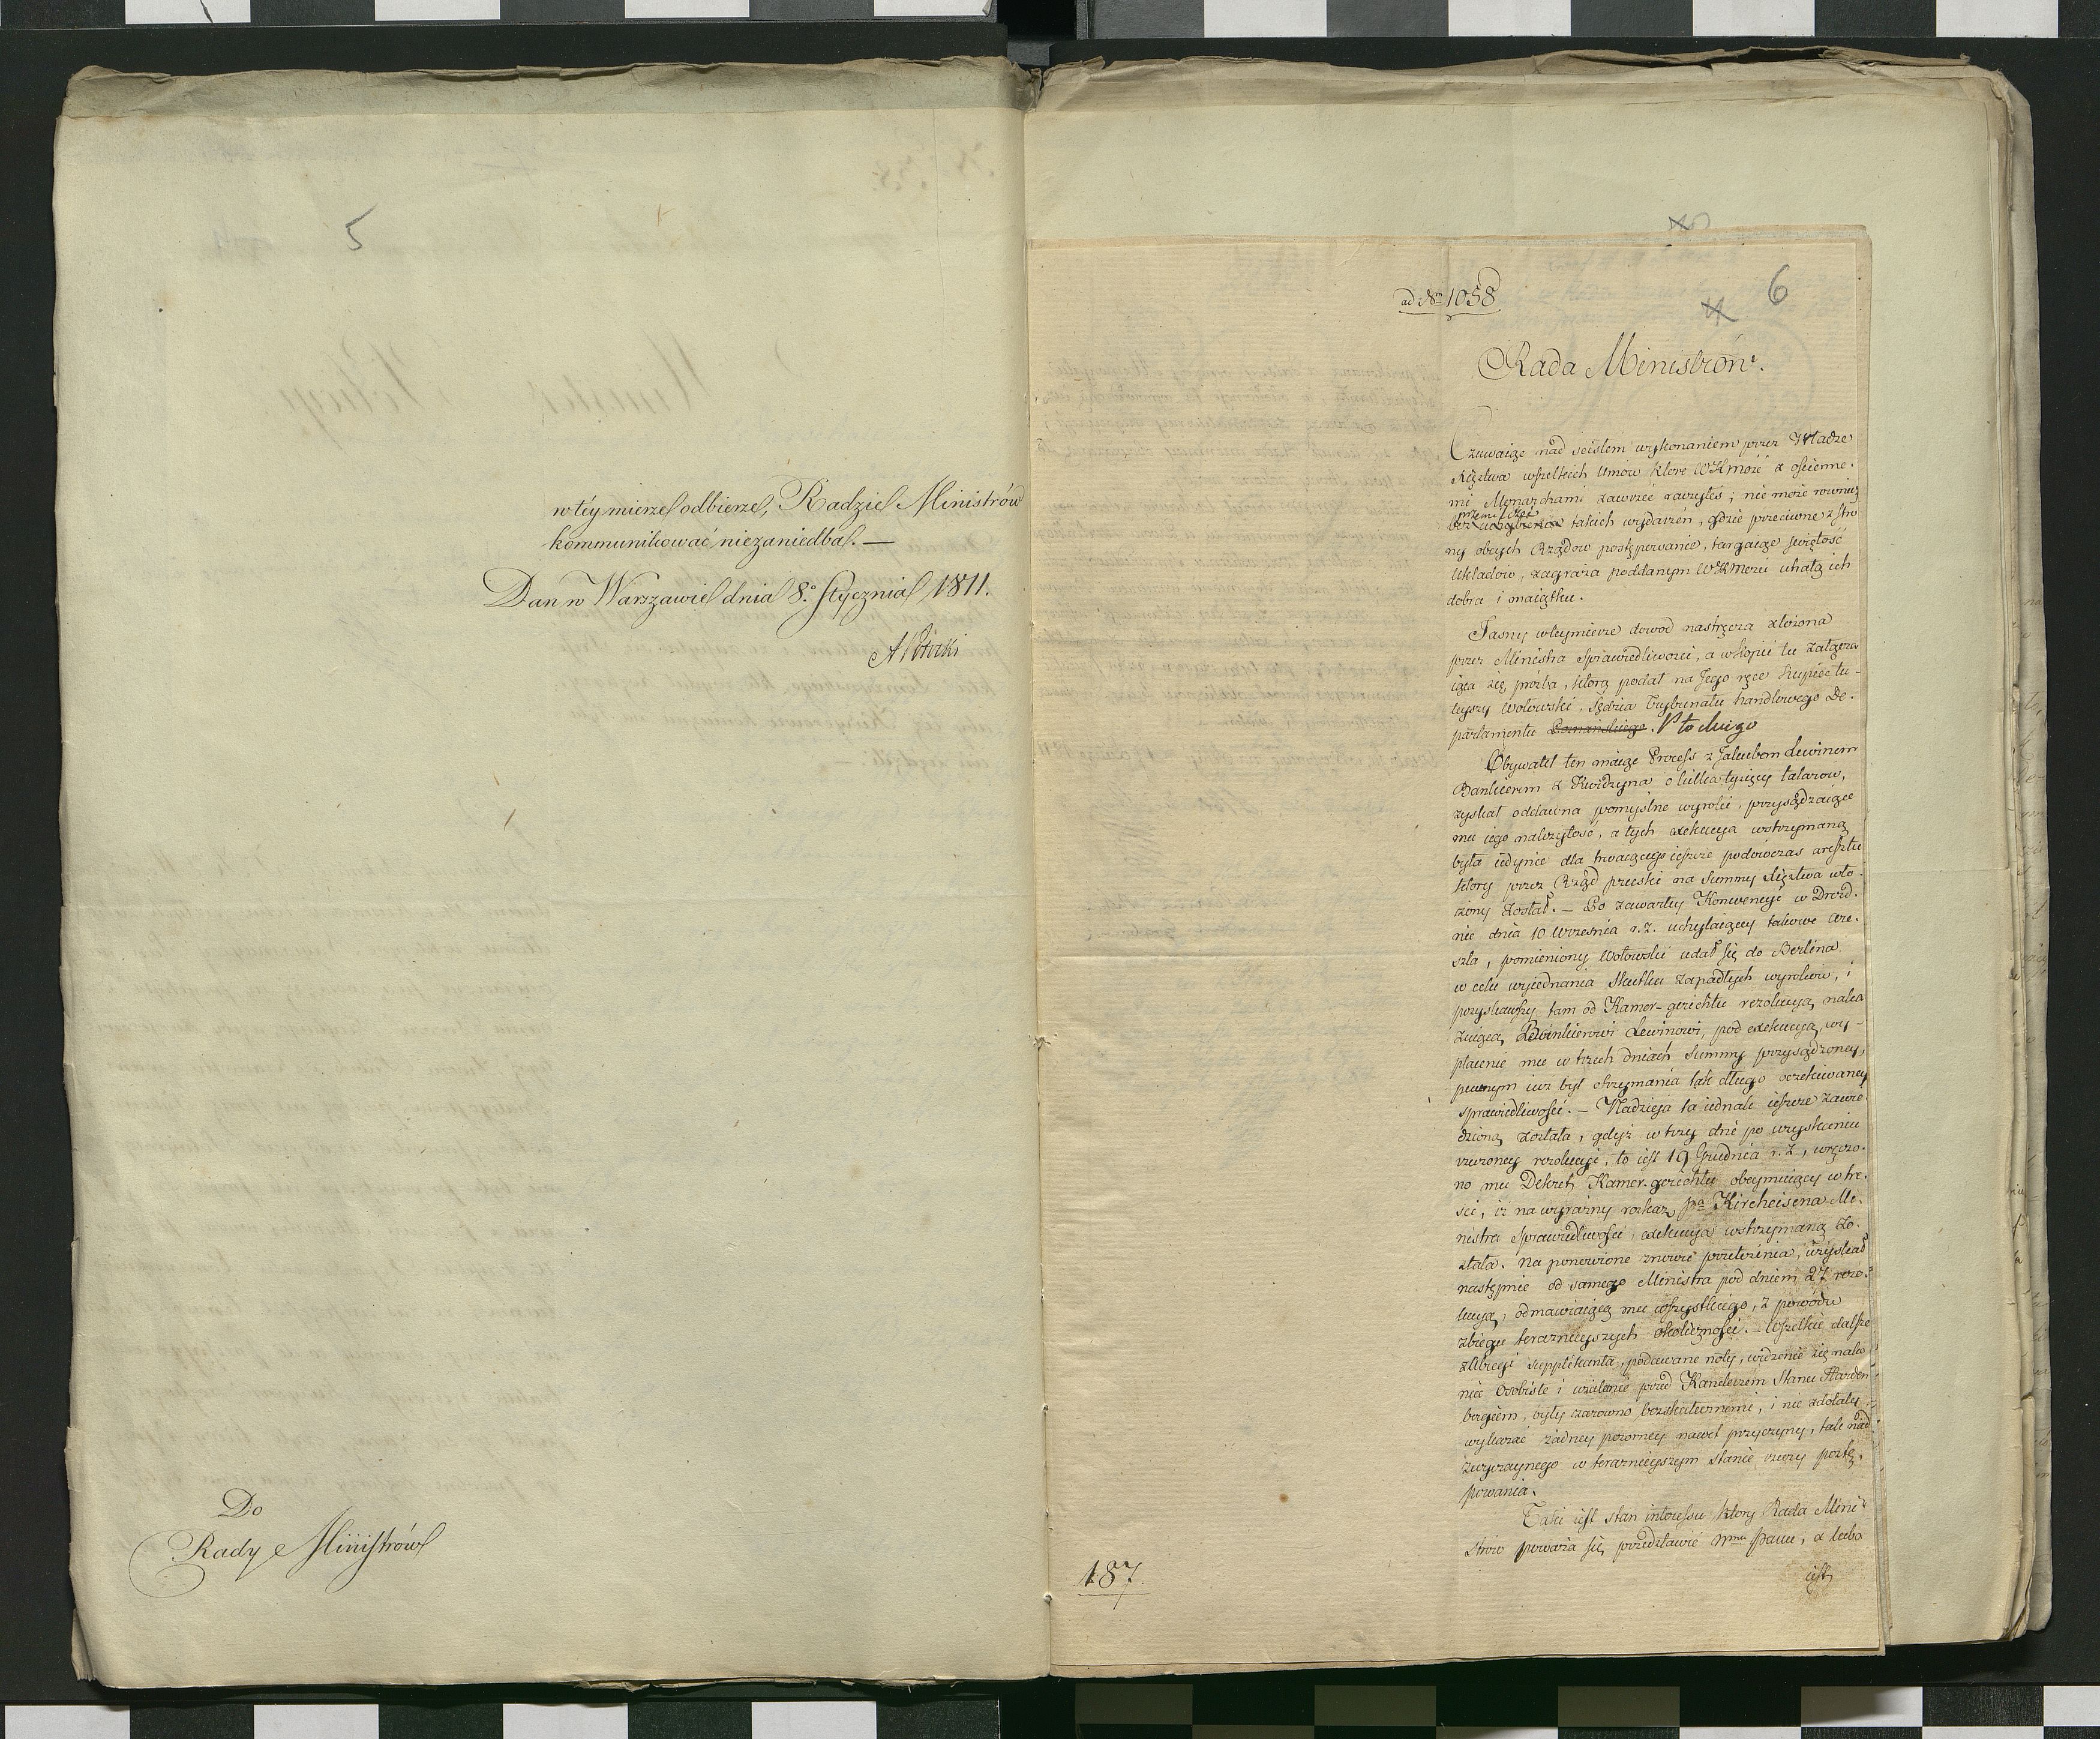 5
w tey mierze odbierze, Radzie Ministrów
kommunikować niezaniedba. —
Dan w Warszawie dnia 8.º Stycznia 1811.
A Potocki
Do
Rady Ministrów
6
ad Nrm 1058
Rada Ministrów.
Czuwaiąc nad scisłem wykonaniem przez Władze
Xięstwa wszelkich Umów które WKMość z ościenne-
mi Monarchami zawrzeć raczyłeś; nie może równiez
przemilczeć
takich wydarzeń, gdzie przeciwne z stro
ny obcych Rządow postępowanie, targaiąc swiętość
Układow, zagraża poddanym WKMości utratą ich
dobra i maiątku.
Jasny w tey mierze dowod nastręcza złożona
przez Ministra Sprawiedliwosci, a w kopii tu załącza
iąca się prozba, którą podał na Jego ręce Kupiec tu-
teyszy Wołowski, Sędzia Trybunału handlowego De-
partamentu Poznańskiego. Płockiego
Obywatel ten maiąc Process z Jakubem Lewinem
Bankierem z Kwidzyna o kilka tysięcy talarow,
zyskał oddawna pomyslne wyroki, przysądzaiące
mu iego należytość, a tych exekucya wstrzymaną
była iedynie dla trwaiącego ieszcze podówczas aresztu
ktory przez Rząd pruski na Summy Xięstwa wło-
żony został. — Po zawartey Konwencyi w Drezd-
nie dnia 10 Września r. z. uchylaiącey takowe are-
szta, pomieniony Wołowski udał się do Berlina
w celu wyiednania skutku zapadłych wyrokow, i
pozyskawszy tam od Kamer-gerichtu rezolucyą naka
zuiącą Bankierowi Lewinowi, pod exekucyą, wy-
płacenie mu w trzech dniach Summy przysądzoney,
pewnym iuz był otrzymania tak długo oczekiwaney
sprawiedliwości. — Nadzieia ta iednak ieszcze zawie
dzioną została, gdyż w trzy dni po uzyskaniu
rzeczoney rezolucyi, to iest 19 Grudnia r. z., wręczo-
no mu Dekret Kamer-gerichtu obeymuiący w tre-
sci, iż na wyraźny rozkaz Pna Kircheisena Mi-
nistra Sprawiedliwości exekucya wstrzymaną zo-
stała. Na ponowione znowu przełożenia, uzyskał
następnie od samego Ministra pod dniem 27 rezo-
lucyą, odmawiaiącą mu wszystkiego, z powodu
zbiegu teraznieyszych okoliczności. — Wszelkie dalsze
zabiegi supplikanta, podawane noty, widzenie się nako
niec osobiste i użalanie przed Kanclerzem Stanu Harden
bergiem, były zarowno bezskutecznemi, i nie zdołały
wykazać żadney pozorney nawet przyczyny, tak nad
zwyczaynego w teraznieyszym stanie rzeczy postę-
powania.
Taki iest stan interessu ktory Rada Mini-
strow poważa się przedstawić Nmu Panu, a lubo
iest
187.